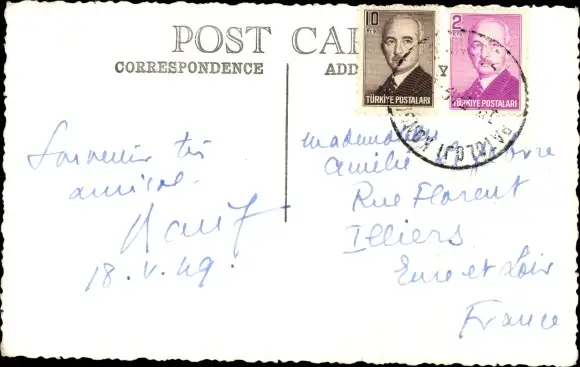 POST CAR
CORRESPONDENCE
ADD Y
10
TÜRKİYE POSTALARI
2
TÜRKİYE POSTALARI
Souvenir très
amical.
18.V.49.
Mademoiselle
Amélie
Rue Florent
Illiers
Eure et Loir
France